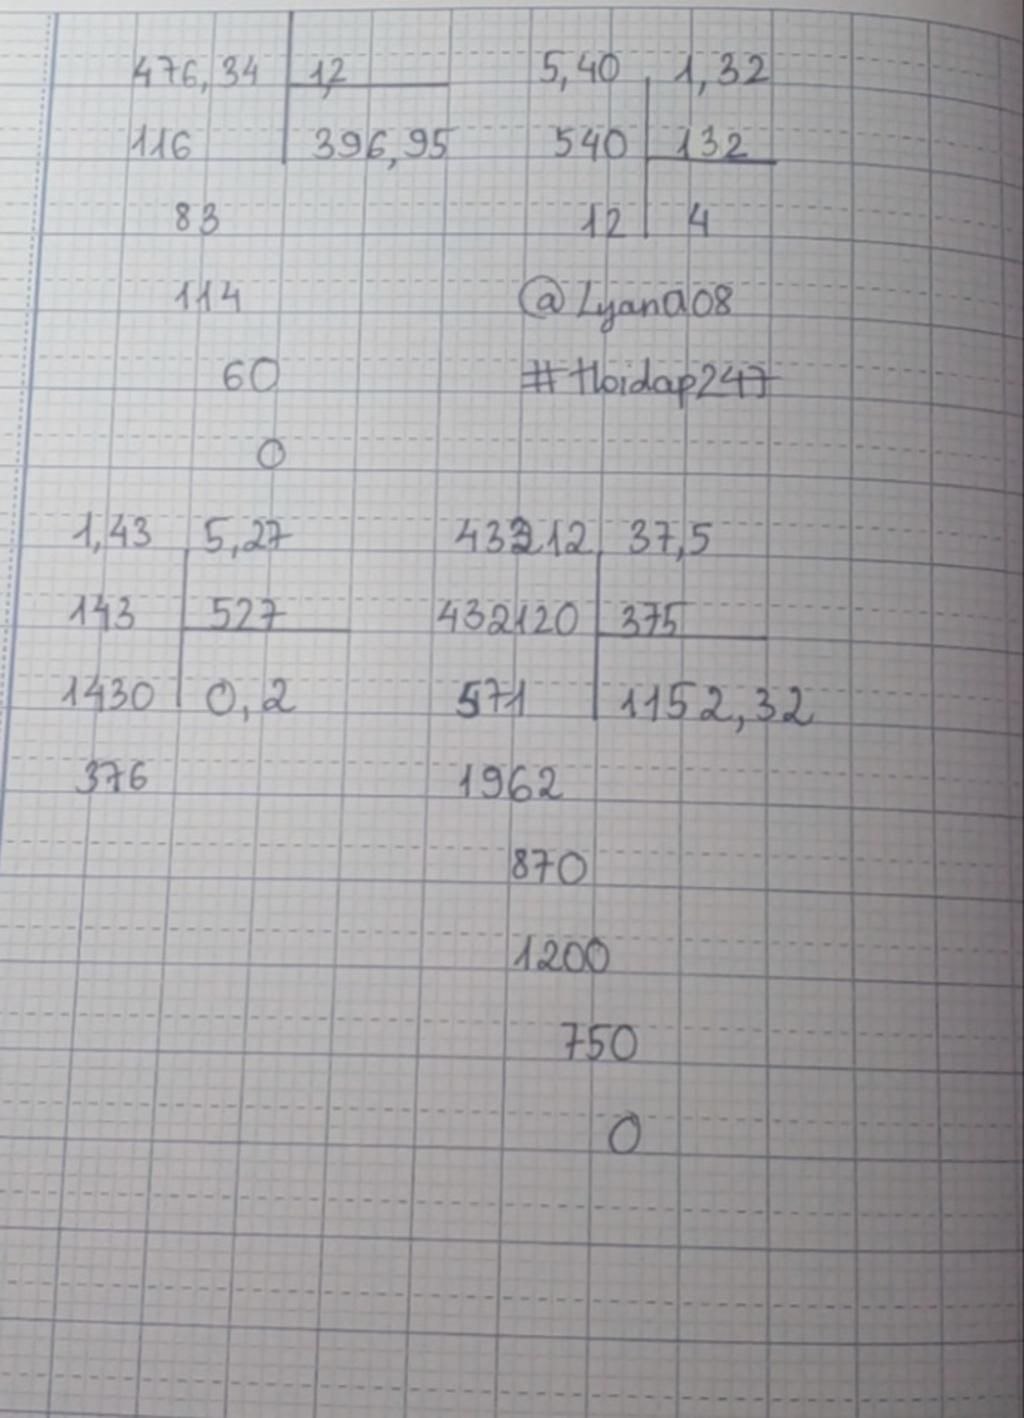 476,34 1,2
116 396,95
83
114
60
0
5,40 1,32
540 132
12 4
@Lyana08
#Hoidap247
1,43 5,27
143 527
1430 0,2
376
43212 37,5
432120 375
571 1152,32
1962
870
1200
750
0